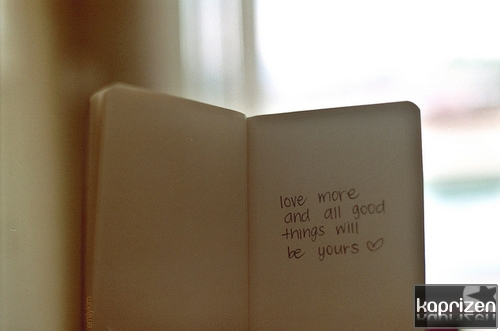 love more
and all good
things will
be yours ♡
kaprizen